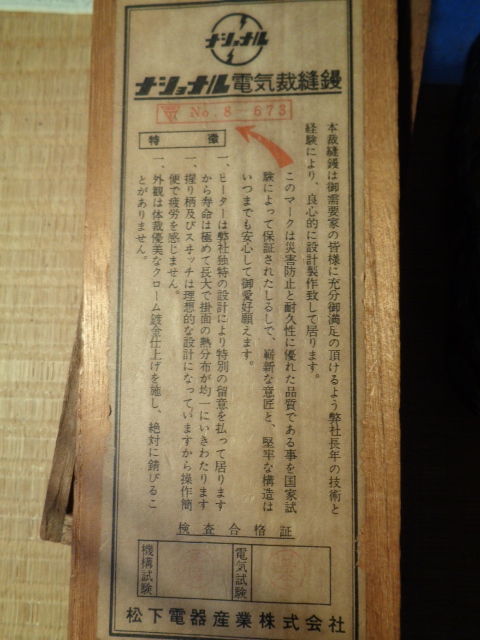 ナショナル
ナショナル電気裁縫鏝
No. 8-673
本裁縫鏝は御需要家の皆様に充分御満足の頂けるよう弊社長年の技術と
経験により、良心的に設計製作致して居ります。
このマークは災害防止と耐久性に優れた品質である事を国家試
験によって保証されたしるしで、嶄新な意匠と、堅牢な構造は
いつまでも安心して御愛好願えます。
特徴
一、ヒーターは弊社独特の設計により特別の留意を払って居ります
から寿命は極めて長大で掛面の熱分布が均一にいきわたります
一、握り柄及びスイッチは理想的な設計になっていますから操作簡
便で疲労を感じません。
一、外観は体裁優美なクローム鍍金仕上げを施し、絶対に錆びるこ
とがありません。
検査合格証
機構試験
電気試験
松下電器産業株式会社